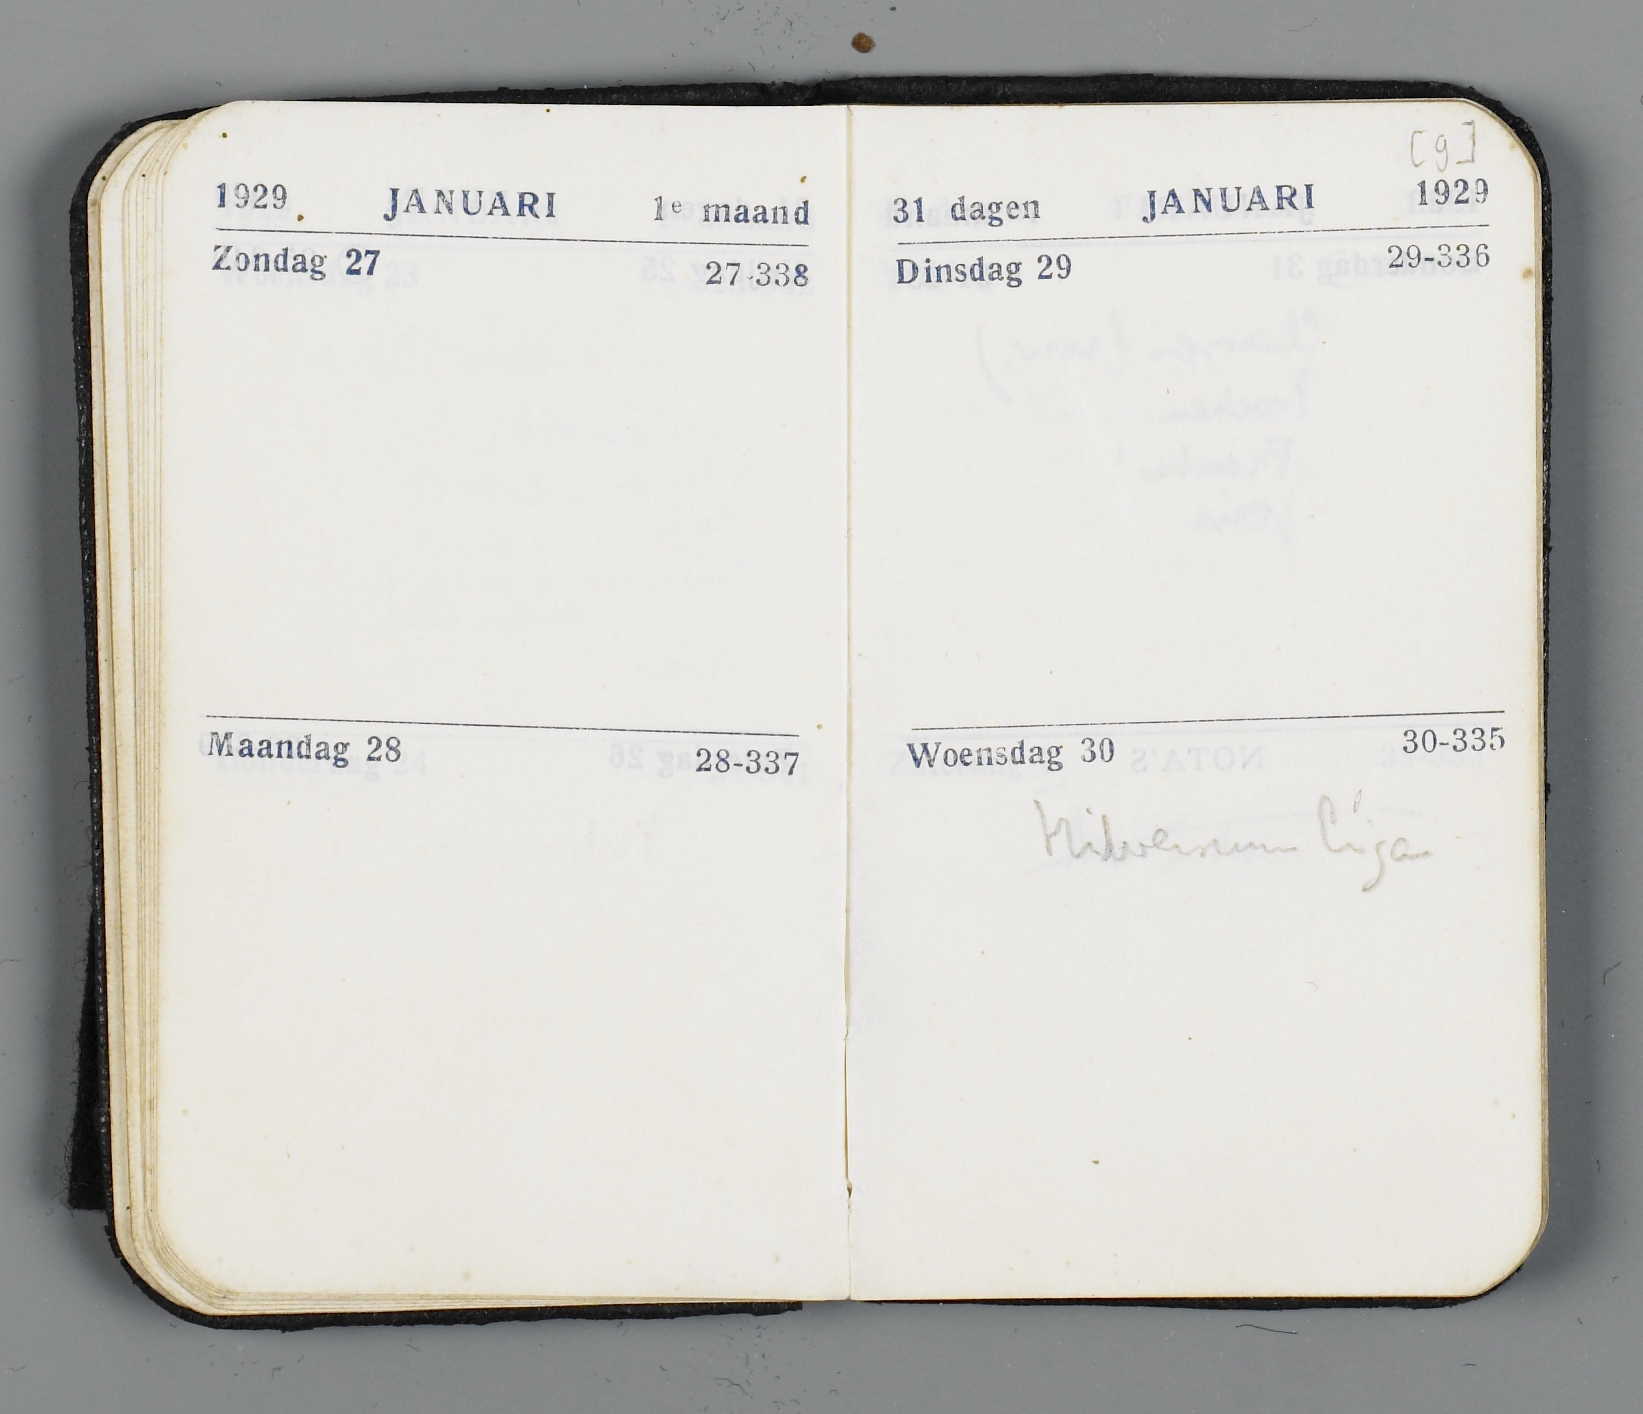 1929 JANUARI 1e maand
Zondag 27 27-338
Maandag 28 28-337
[9]
31 dagen JANUARI 1929
Dinsdag 29 29-336
Woensdag 30 30-335
Hilversum